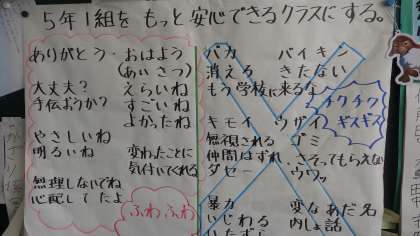 5年1組を もっと 安心できるクラスにする。
ありがとう・おはよう
(あいさつ)
大丈夫? えらいね
手伝おうか? すごいね
よかったね
やさしいね
明るいね 変わったことに
気付いてくれる
無理しないでね
心配してたよ
ふわふわ
バカ バイキン
消える きたない
もう学校に来るな
チクチク
ギスギス
キモイ ウザイ
無視される ゴミ
仲間はずれ さそってもらえない
ダセー ウワッ
暴力 変なあだ名
いじわる 内しょ話